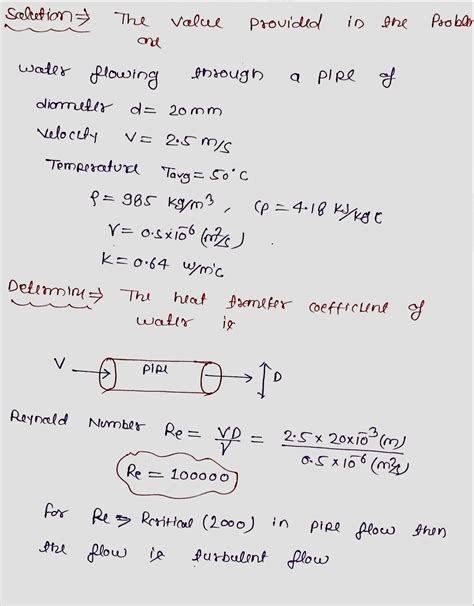 Solution ⇒ The value provided in the Problem
are
water flowing through a pipe of
diameter d = 20mm
velocity V = 2.5 m/s
Temperature Tavg = 50°C
ρ = 985 kg/m³, Cp = 4.18 kJ/kg C
ν = 0.5×10⁻⁶ (m²/s)
K = 0.64 w/m°c
Determine ⇒ The heat transfer coefficient of
water is
V → PIPE → D
Reynold Number Re = VD/ν = 2.5 × 20×10⁻³ (m) / 0.5×10⁻⁶ (m²/s)
Re = 100000
for Re ⇒ Rcritical (2000) in pipe flow then
the flow is turbulent flow